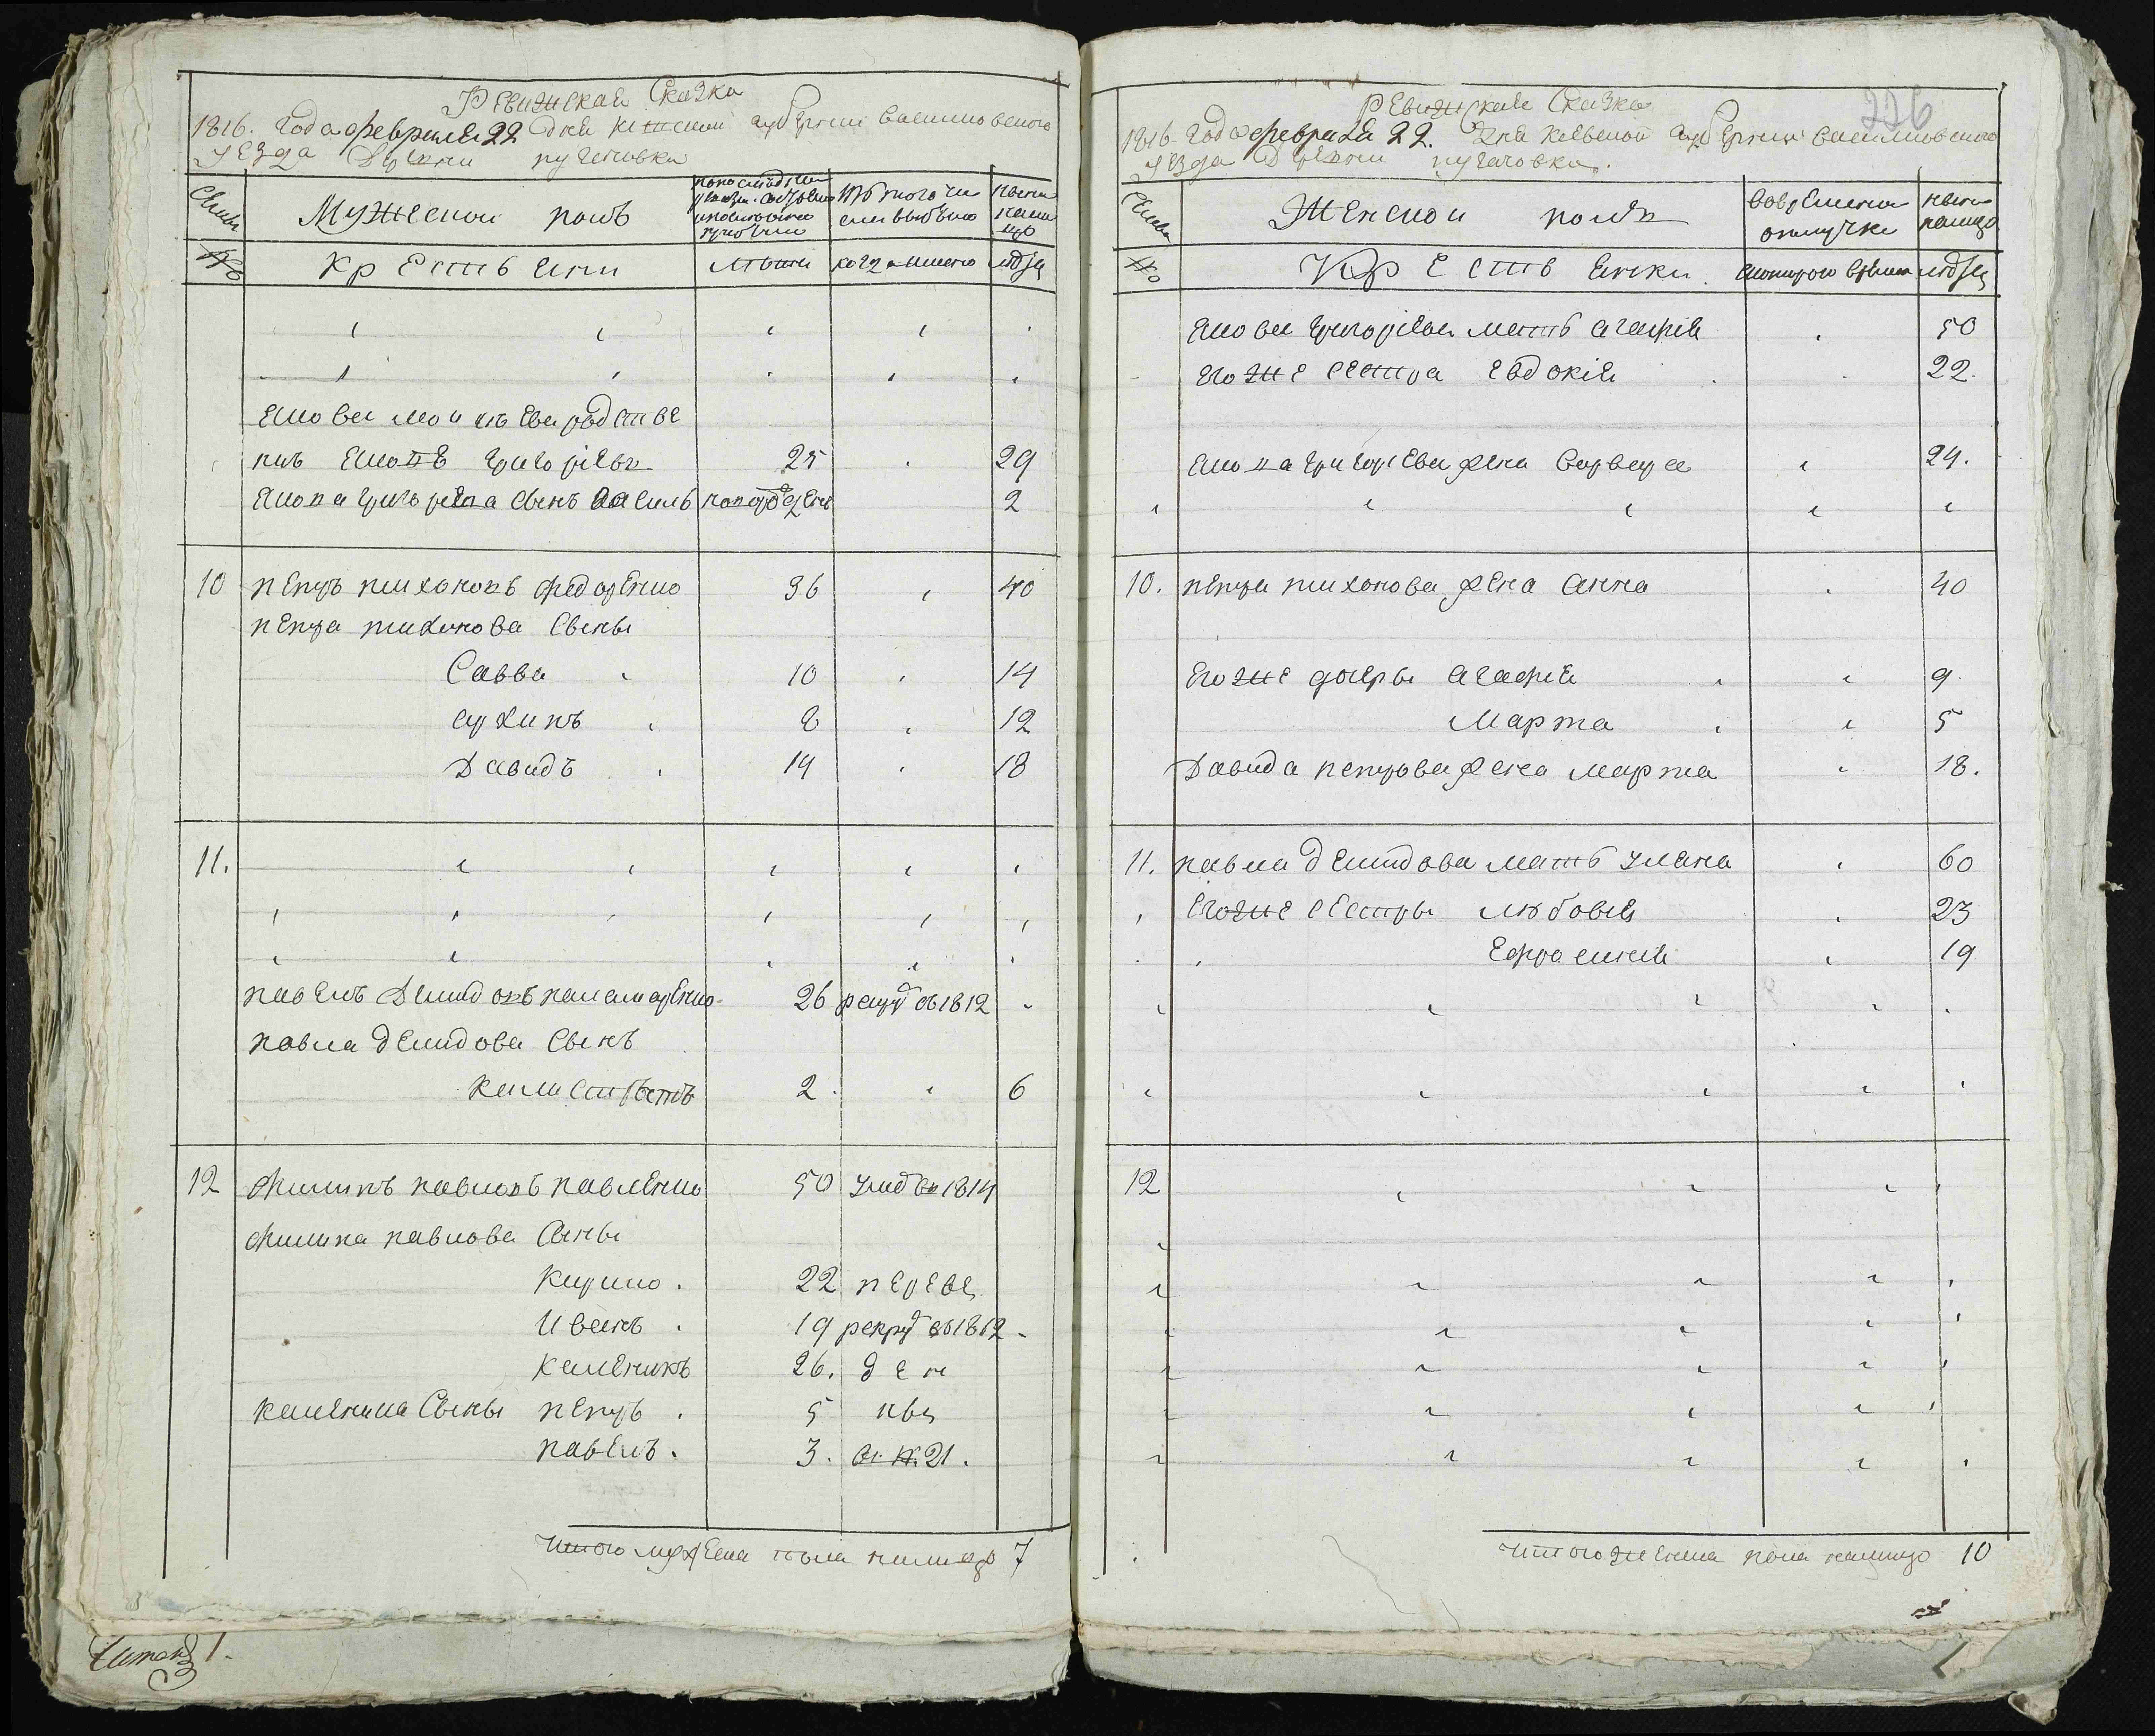 Ревижская Сказка
1816. Года февраля 22 дня Киевской губернии Васильковского
уезда Деревни пугачовки
Семьи
Мужеской полъ
по последней ревизии состояло и после оной прибыло
Изъ того числа выбыло
Ныне налицо
№
Крестьяни
Лѣта
когда имено
лѣта
Якова мои въ Ева родстве
никъ Яковъ Григорієвъ 25 29
Якова Григориева Сынъ Василь новорожденъ 2
10 Петръ Тихоновъ Федоренко 36 40
Петра Тихонова Сыны
Савва 10 14
Архипъ 8 12
Давидъ 14 18
11.
Павелъ Демидовъ Паламаренко 26 рекрут въ 1812
Павла Демидова Сынъ
Калистратъ 2 6
12 Филипъ Павловъ Павленко 50 умре въ 1814
Филипа Павлова Сыны
Кирило 22 переве
Иванъ 19 рекрут въ 1812
Каленикъ 26. ден
Каленика Сыны Петръ 5 ны
Павелъ 3. в. №. 21.
Итого мужеска пола налицо 7
Читалъ 1.
226
Ревижская Сказка
1816 Года февраля 22. Дня Киевской губернии Васильковского
уезда Деревни пугачовки.
Семьи
Женской полъ
Вовремянной отлучке
Ныне налицо
№
Крестьянки
скоторого времени
лѣта
Якова Григориева мать Агафия 50
Егоже сестра Евдокія 22.
Якова Григориева жена Варвара 24.
10. Петра Тихонова жена Анна 40
Егоже дочеры Агафия 9
Марта 5
Давида Петрова жена Марта 18.
11. Павла Демидова мать Уляна 60
Егоже сестры Любовия 23
Ефросиния 19
12
Итого женска пола налицо 10